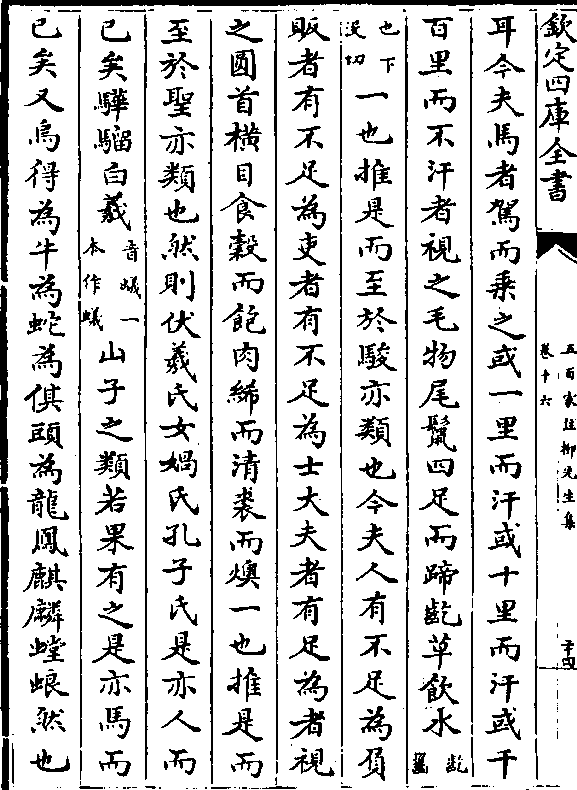 欽定四庫全書
五百家註柳先生集
卷十六
二十四
耳今夫馬者駕而乘之或一里而汗或十里而汗或千
百里而不汗者視之毛物尾鬛四足而蹄齕草飲水齕齧
也下没切一也推是而至於駿亦類也今夫人有不足為負
販者有不足為吏者有不足為士大夫者有足為者視
之圓首橫目食穀而飽肉絺而清裘而燠一也推是而
至於聖亦類也然則伏羲氏女媧氏孔子氏是亦人而
已矣驊騮白羲音蟻一本作蟻山子之類若果有之是亦馬而
已矣又烏得為牛為蛇為倛頭為龍鳳麒麟螳蜋然也